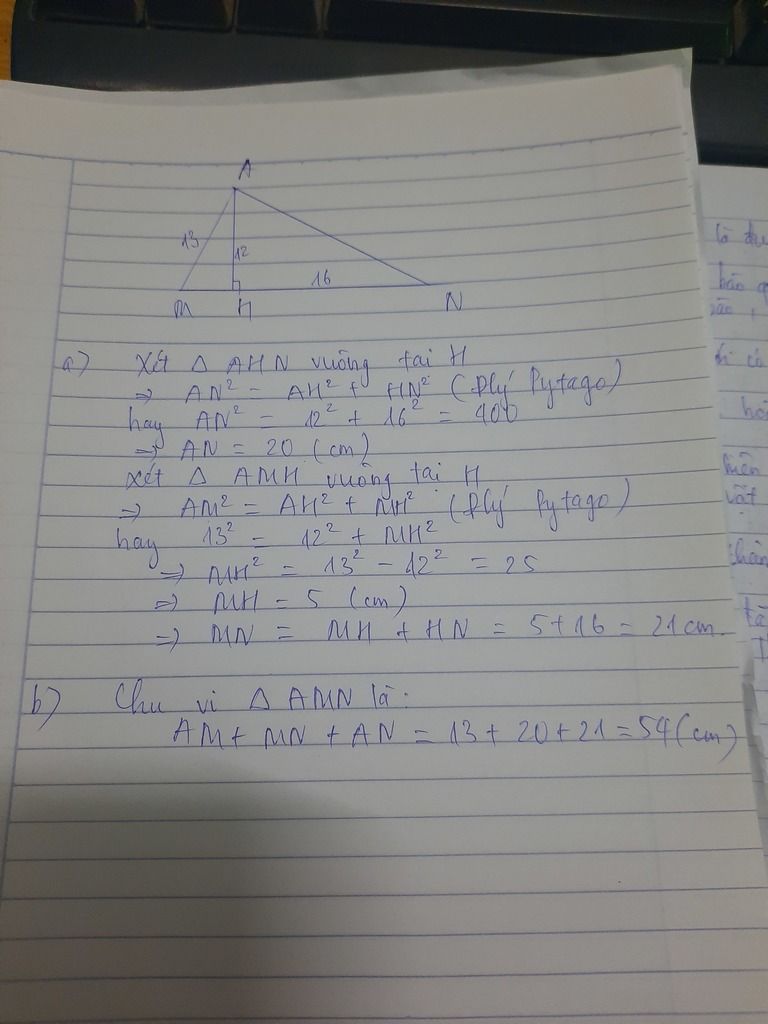 A
13
12
16
M
H
N
a) Xét Δ AHN vuông tại H
=> AN² = AH² + HN² (Đlý Pytago)
hay AN² = 12² + 16² = 400
=> AN = 20 (cm)
Xét Δ AMH vuông tại H
=> AM² = AH² + MH² (Đlý Pytago)
hay 13² = 12² + MH²
=> MH² = 13² - 12² = 25
=> MH = 5 (cm)
=> MN = MH + HN = 5 + 16 = 21 cm
b) Chu vi Δ AMN là:
AM + MN + AN = 13 + 20 + 21 = 54 (cm)